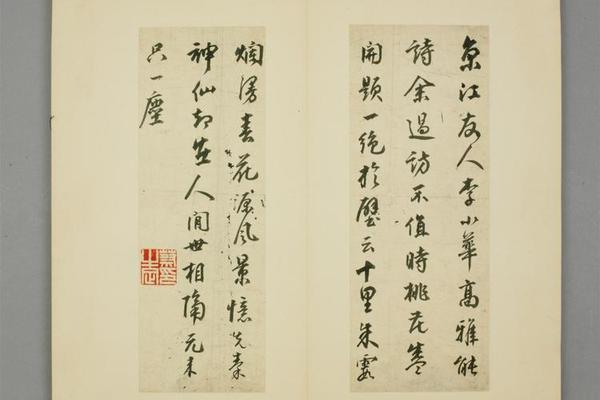 京江友人李小華高雅能
詩余過訪不值時桃花盛
開題一絕於壁云十里朱霞
爛漫春花源風景憶先秦
神仙却在人間世相隔元來
只一塵